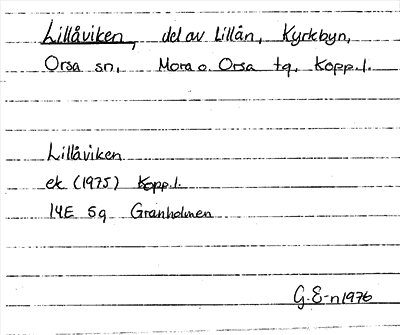 Lillåviken, del av Lillån, Kyrkbyn,
Orsa sn, Mora o. Orsa tg, Kopp.l.
Lillåviken
ek (1975) Kopp.l.
14E 5g Granholmen
G.E-n 1976